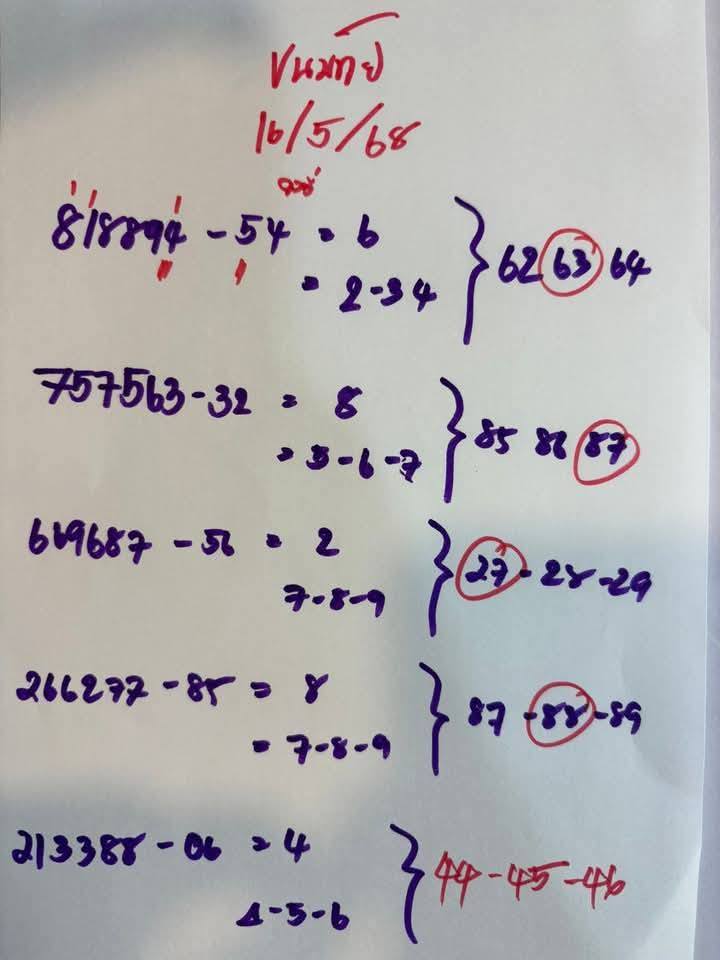 ขนมทัย
16/5/68
818894 - 54 = 6 } 62 63 64
= 2-34
757563-32 = 8 } 85 86 87
= 5-6-7
669687 - 56 = 2 } 27-28-29
7-8-9
266277 - 85 = 8 } 87-88-89
= 7-8-9
213388 - 06 = 4 } 44-45-46
4-5-6